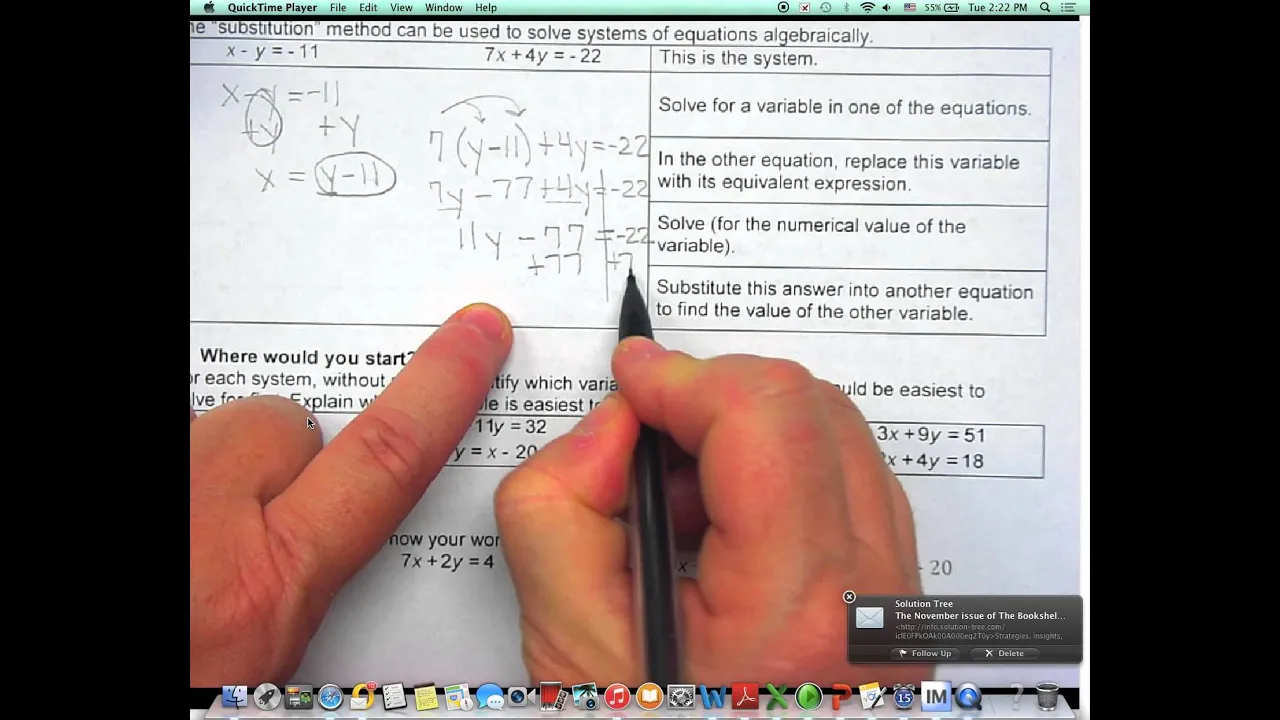 QuickTime Player File Edit View Window Help 55% Tue 2:22 PM
he "substitution" method can be used to solve systems of equations algebraically.
x - y = - 11
7x + 4y = - 22
This is the system.
x - y = -11
+y +y
x = y - 11
7(y - 11) + 4y = -22
7y - 77 + 4y = -22
11y - 77 = -22
+77 +7
Solve for a variable in one of the equations.
In the other equation, replace this variable
with its equivalent expression.
Solve (for the numerical value of the
variable).
Substitute this answer into another equation
to find the value of the other variable.
Where would you start?
or each system, without tify which varia uld be easiest to
lve for Explain le is easiest
11y = 32
y = x - 20
3x + 9y = 51
x + 4y = 18
how your wor
7x + 2y = 4
- 20
Solution Tree
The November issue of The Bookshel...
<http://info.solution-tree.com/
icIE0FPkOAk00A000eq2T0y> Strategies, insights,
Follow Up Delete
15 IM